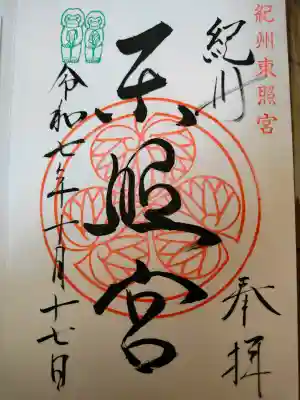 紀州東照宮
紀州
東照宮
奉拝
令和七年十月十七日